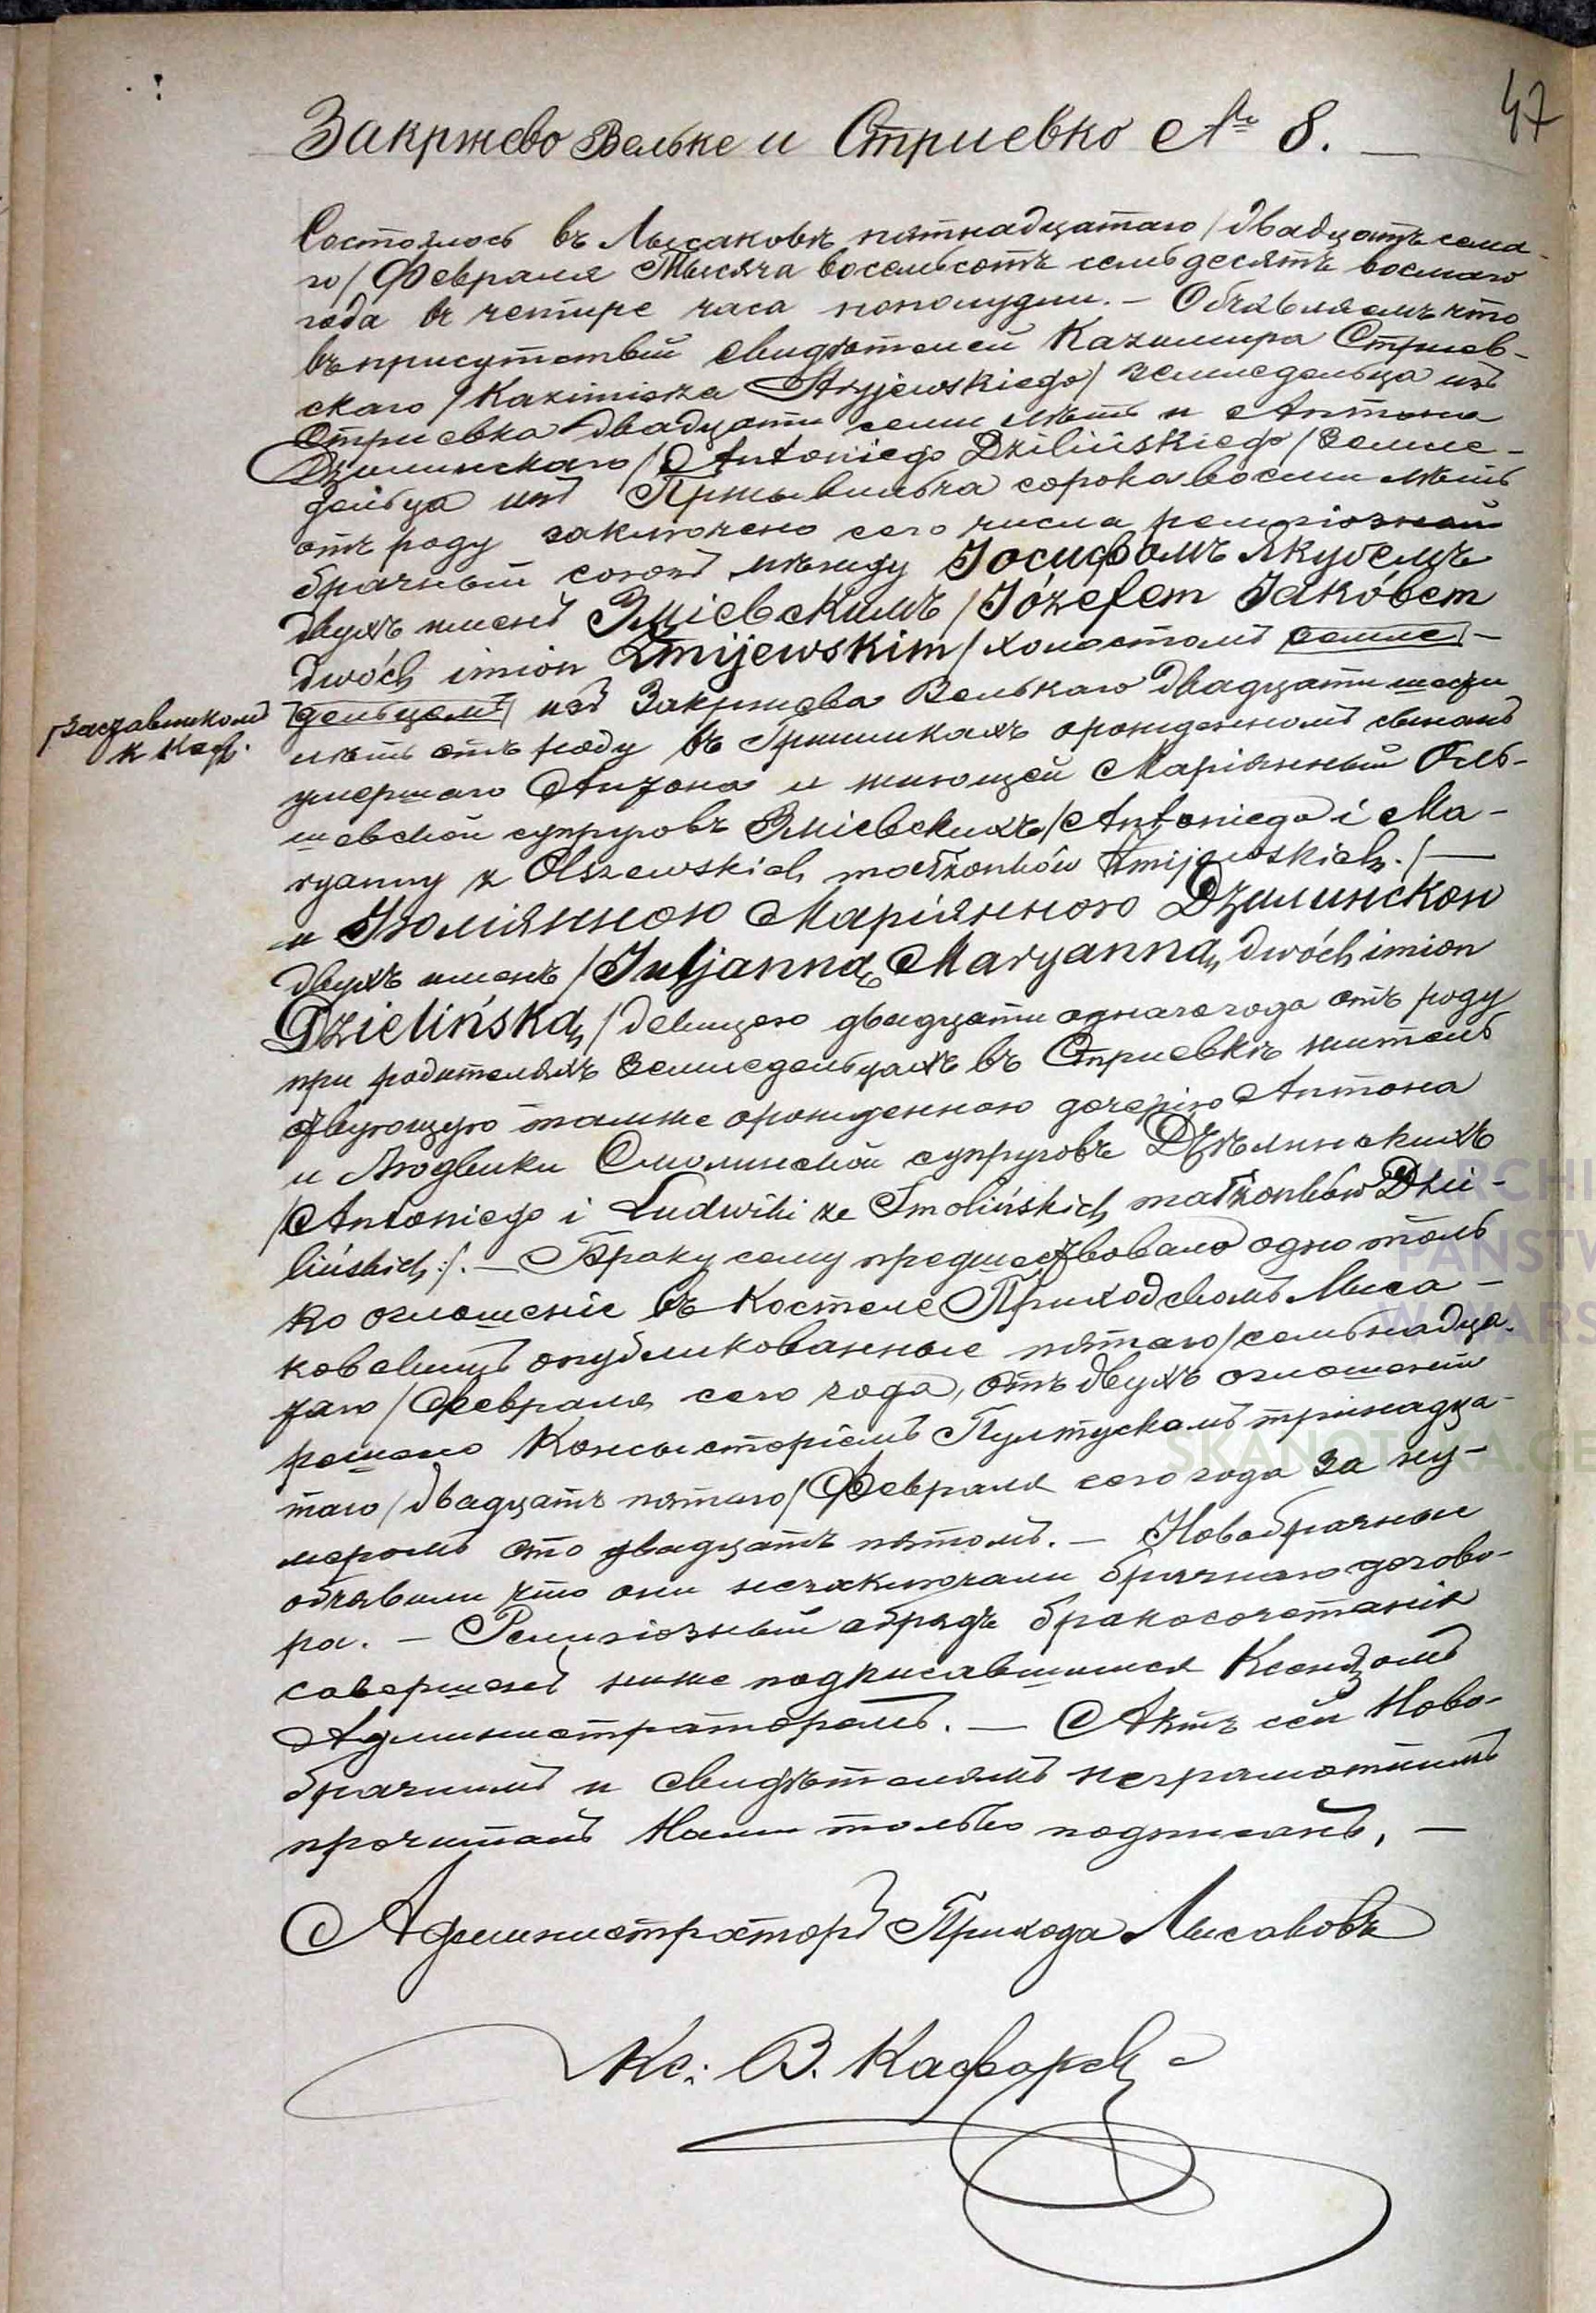 47
Закржево Вельке и Стриевко № 8. —
Состоялось въ Лысаковѣ пятнадцатаго / двадцать седма-
го / Февраля Тысяча восемьсотъ семьдесятъ восмаго
года въ четире часа пополудни. — Объявляемъ что
въ присутствіи свидѣтелей Казимира Стриев-
скаго / Kazimierza Stryjewskiego / земледельца изъ
Стриевка двадцати семи лѣтъ и Антона
Дзилинскаго / Antoniego Dzilińskiego / земле-
дельца изъ Пржывильча сорока восми лѣтъ
отъ роду заключено сего числа религіозный
брачный союзъ между Іосифомъ Якубемъ
двухъ именъ Зміевскимъ / Józefem Jakóbem
dwóch imion Żmijewskim / холостомъ земле-
дельцемъ изъ Закржева Велькаго двадцати шести
/заставникомъ
к Каф.
лѣтъ отъ роду въ Гришикахъ орожденномъ сыномъ
умершаго Антона и живющей Маріянный Оль-
шевской супруговъ Зміевскихъ / Antoniego i Ma-
ryanny z Olszewskich małżonków Żmijewskich. / —
и Юліянною Маріянною Дзилинскою
двухъ именъ / Juljanną Maryanną dwóch imion
Dzielińską / девицею двадцати однаго года отъ роду
при родителяхъ земледельцахъ въ Стриевкѣ житель
ствующую тамже орожденною дочерію Антона
и Людвики Смолинской супруговъ Дзѣлинскихъ
/ Antoniego i Ludwiki ze Smolińskich małżonków Dzi-
lińskich :/. — Браку сему предшествовало одно толь
ко оглошеніе въ Костеле Приходскомъ Лыса-
ковскимъ опубликованные пятаго / семьнадца-
таго / Февраля сего года, отъ двухъ оглошеній
решоно Консысторіемъ Пултускомъ тринадца-
таго / двадцать пятаго / Февраля сего года за ну-
меромъ сто двадцать пятомъ. — Новобрачные
объявили что они незаключали брачнаго догово-
ра. — Религіозный обрядъ бракосочетанія
совершенъ ниже подписавшимся Ксендзомъ
Администраторомъ. — Актъ сей Ново-
брачнимъ и свидѣтелямъ неграмотнимъ
прочитанъ Нами только подписанъ. —
Администраторъ Прихода Лысаковъ
Кс: В.